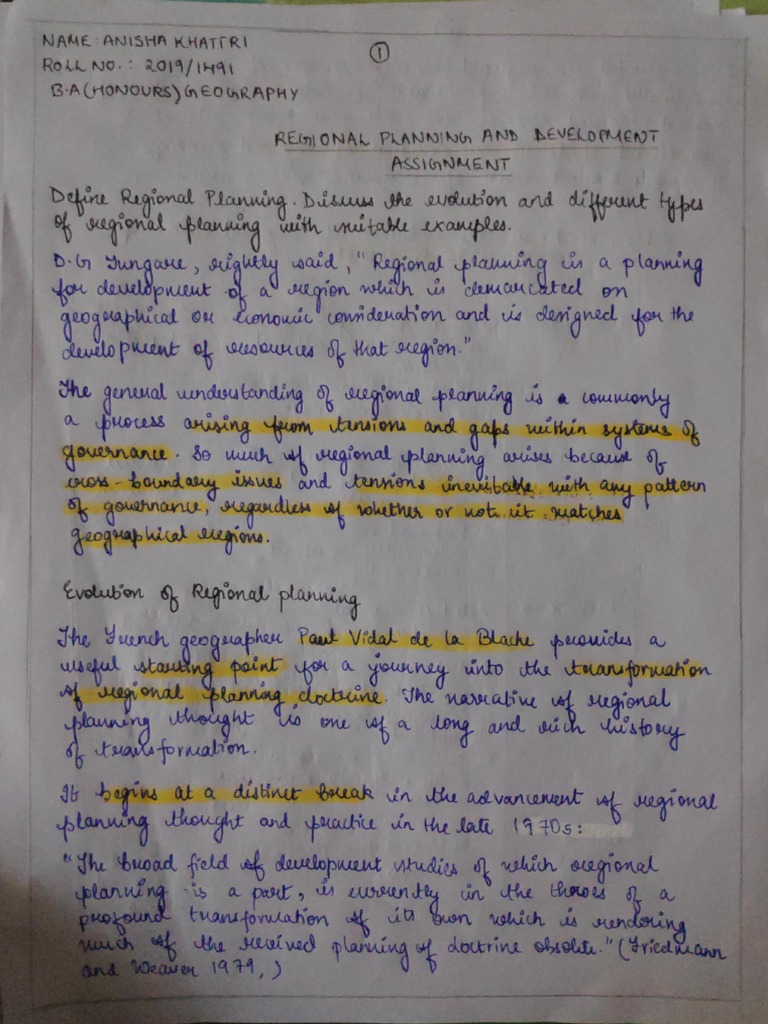 NAME: ANISHA KHATTRI
①
ROLL NO.: 2019/1491
B.A(HONOURS) GEOGRAPHY
REGIONAL PLANNING AND DEVELOPMENT
ASSIGNMENT
Define Regional Planning. Discuss the evolution and different types
of regional planning with suitable examples.
D.G Tungare, rightly said, "Regional planning is a planning
for development of a region which is demarcated on
geographical or economic consideration and is designed for the
development of resources of that region."
The general understanding of regional planning is a commonly
a process arising from tensions and gaps within systems of
governance. So much of regional planning arises because of
cross-boundary issues and tensions inevitable with any pattern
of governance, regardless of whether or not it matches
geographical regions.
Evolution of Regional planning
The French geographer Paul Vidal de la Blache provides a
useful starting point for a journey into the transformation
of regional planning doctrine. The narrative of regional
planning thought is one of a long and rich history
of transformation.
It begins at a distinct break in the advancement of regional
planning thought and practice in the late 1970s:
"The broad field of development studies of which regional
planning is a part, is currently in the throes of a
profound transformation of its own which is rendering
much of the received planning of doctrine obsolete." (Friedmann
and Weaver 1979,)